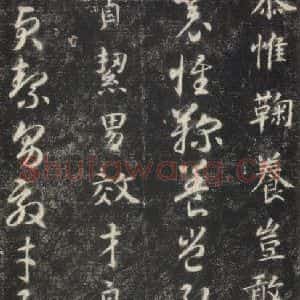 恭惟鞠養豈敢
恭惟鞠養豈敢
貞絜男效才良
貞絜男效才良
Shufawang.Cn